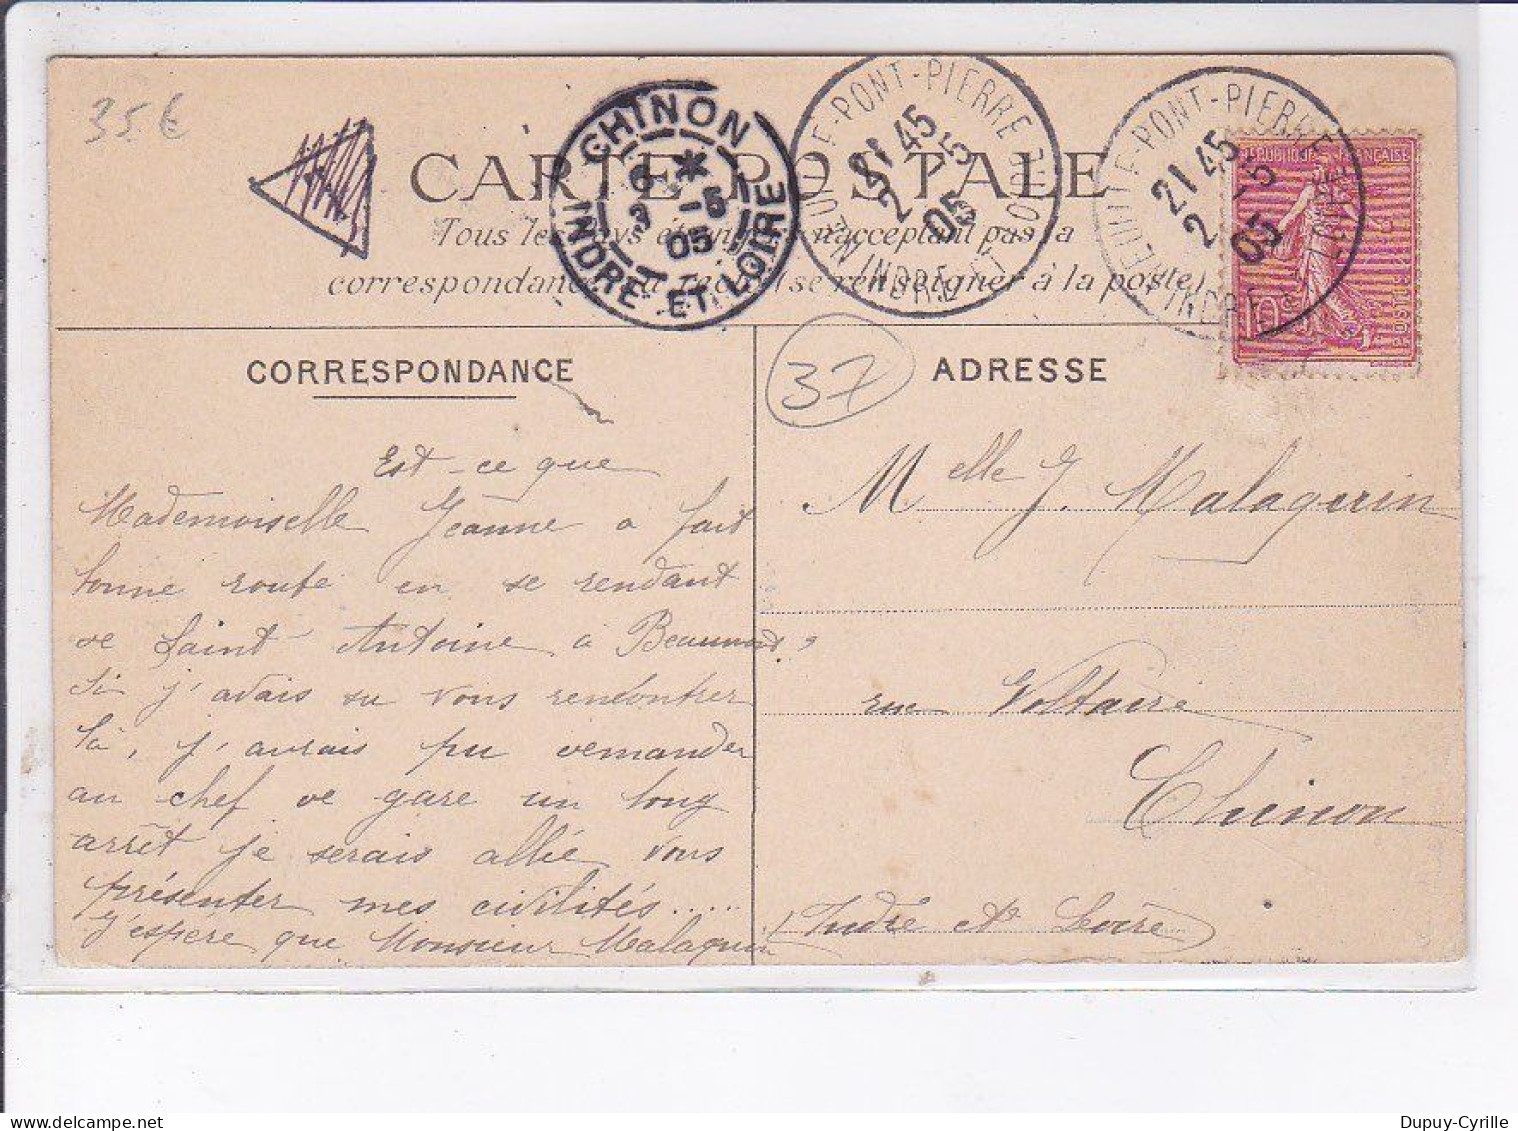 35€
CARTE POSTALE
Tous les pays étrangers n'acceptant pas la
correspondance au recto (se renseigner à la poste)
CHINON
6 * 
3 - 5
05
INDRE ET LOIRE
NEUILLÉ-PONT-PIERRE
21 45
2 - 5
05
INDRE ET LOIRE
NEUILLÉ-PONT-PIERRE
21 45
2 - 5
05
INDRE ET LOIRE
REPUBLIQUE FRANÇAISE
10
POSTES
CORRESPONDANCE
37
ADRESSE
Est-ce que
Mademoiselle Jeanne a fait
bonne route en se rendant
de Saint Antoine à Beaumont ?
Si j'avais su vous rencontrer
là, j'aurais pu demander
au chef de gare un long
arrêt je serais allée vous
présenter mes civilités.....
J'espère que Monsieur Malaguin
Melle J. Malaguin
rue Voltaire
Chinon
(Indre et Loire)
Dupuy-Cyrille